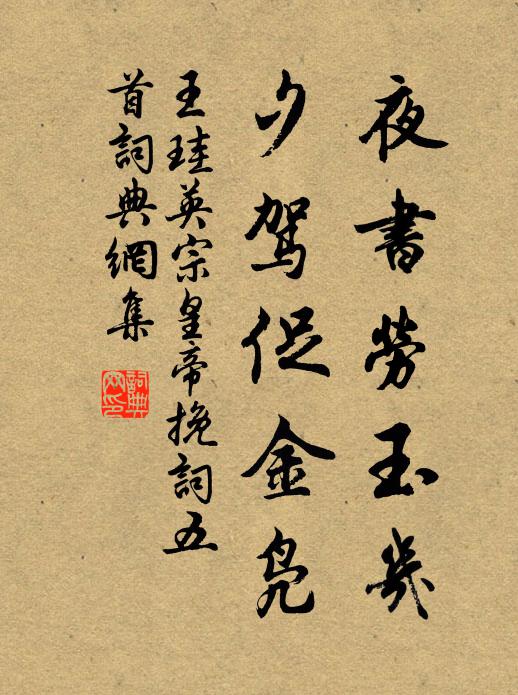 夜書勞玉幾
夕駕促金凫
王珪英宗皇帝挽詞五
首詞典網集
詞典
网印